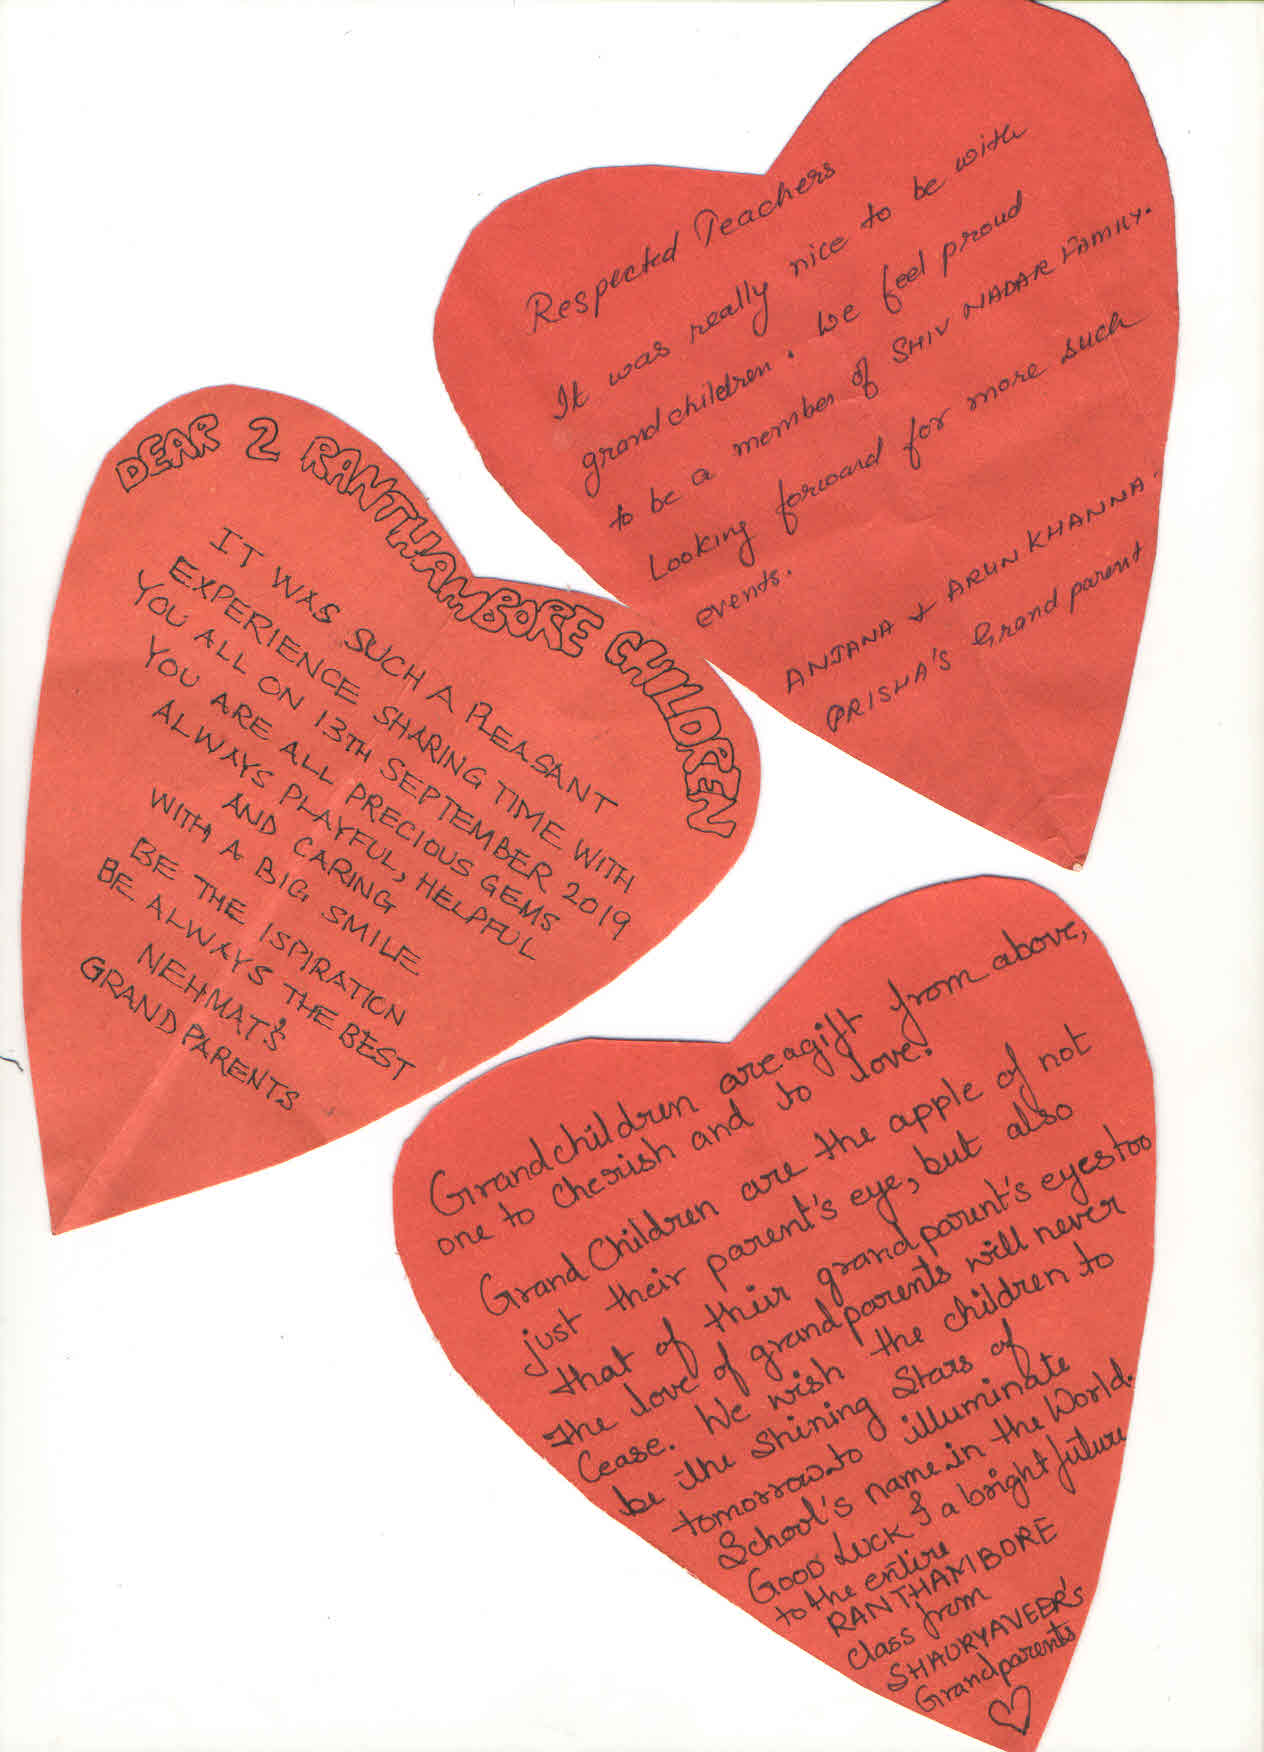 Respected Teachers
It was really nice to be with
grand children. We feel proud
to be a member of SHIV NADAR FAMILY.
Looking forward for more such
events.
ANJANA + ARUN KHANNA.
PRISHA'S Grand parent
DEAR 2 RANTHAMBORE CHILDREN
IT WAS SUCH A PLEASANT
EXPERIENCE SHARING TIME WITH
YOU ALL ON 13TH SEPTEMBER 2019
YOU ARE ALL PRECIOUS GEMS
ALWAYS PLAYFUL, HELPFUL
AND CARING
WITH A BIG SMILE
BE THE ISPIRATION
BE ALWAYS THE BEST
NEHMAT'S
GRAND PARENTS
Grandchildren are a gift from above,
one to cherish and to love.
Grand Children are the apple of not
just their parent's eye, but also
that of their grandparent's eyes too
The love of grandparents will never
Cease. We wish the children to
be the Shining Stars of
tomorrow to illuminate
School's name in the World.
GOOD LUCK & a bright future
to the entire
RANTHAMBORE
class from
SHAURYAVEER's
Grandparents